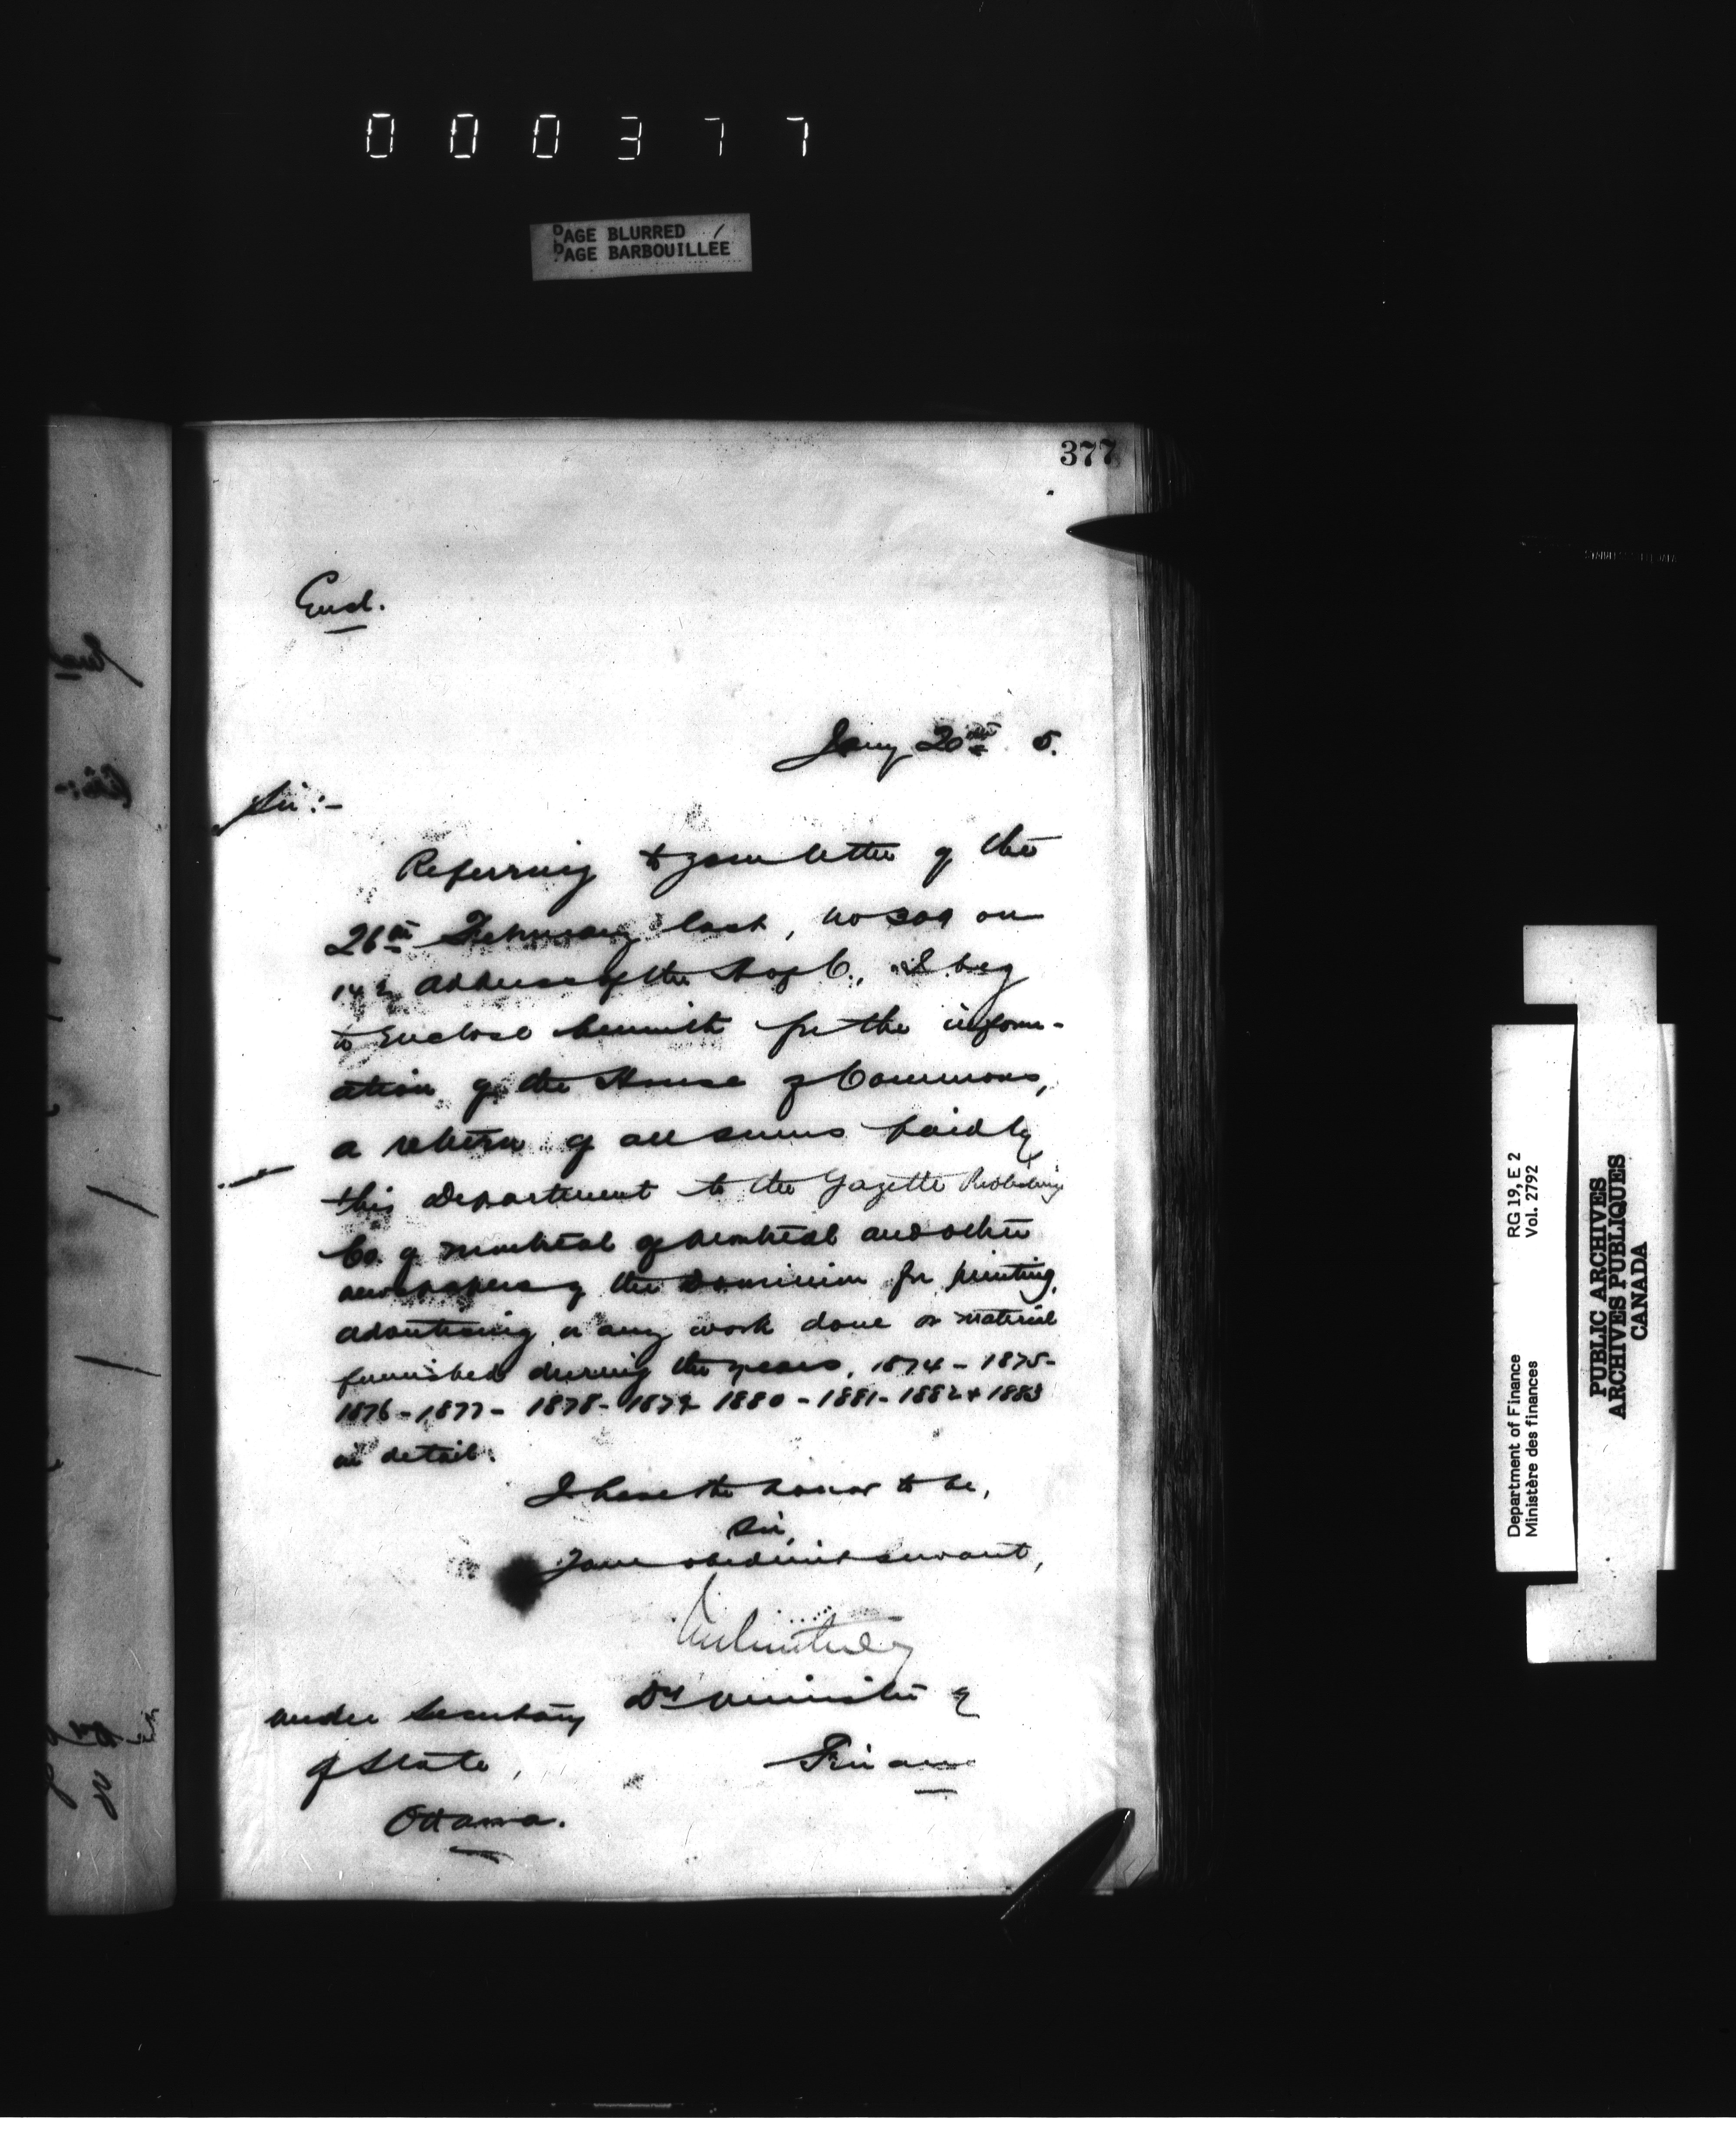 000377
PAGE BLURRED
PAGE BARBOUILLÉE
377
Encl.
Jany 20th 5.
Sir:-
Referring to your letter of the
26th February last, No 309 on
Address of the H of C., I beg
to enclose herewith for the inform-
ation of the House of Commons,
a return of all sums paid by
this Department to the Gazette Publishing
Co. of Montreal of Montreal and other
newspapers of the Dominion for printing,
advertising or any work done or material
furnished during the years, 1874 - 1875 -
1876 - 1877 - 1878 - 1879 1880 - 1881 - 1882 + 1883
in detail.
I have the honor to be,
Sir,
Your obedient servant,
Dy Minister of
Finance
Under Secretary
of State,
Ottawa.
Department of Finance RG 19, E 2
Ministère des finances Vol. 2792
PUBLIC ARCHIVES
ARCHIVES PUBLIQUES
CANADA